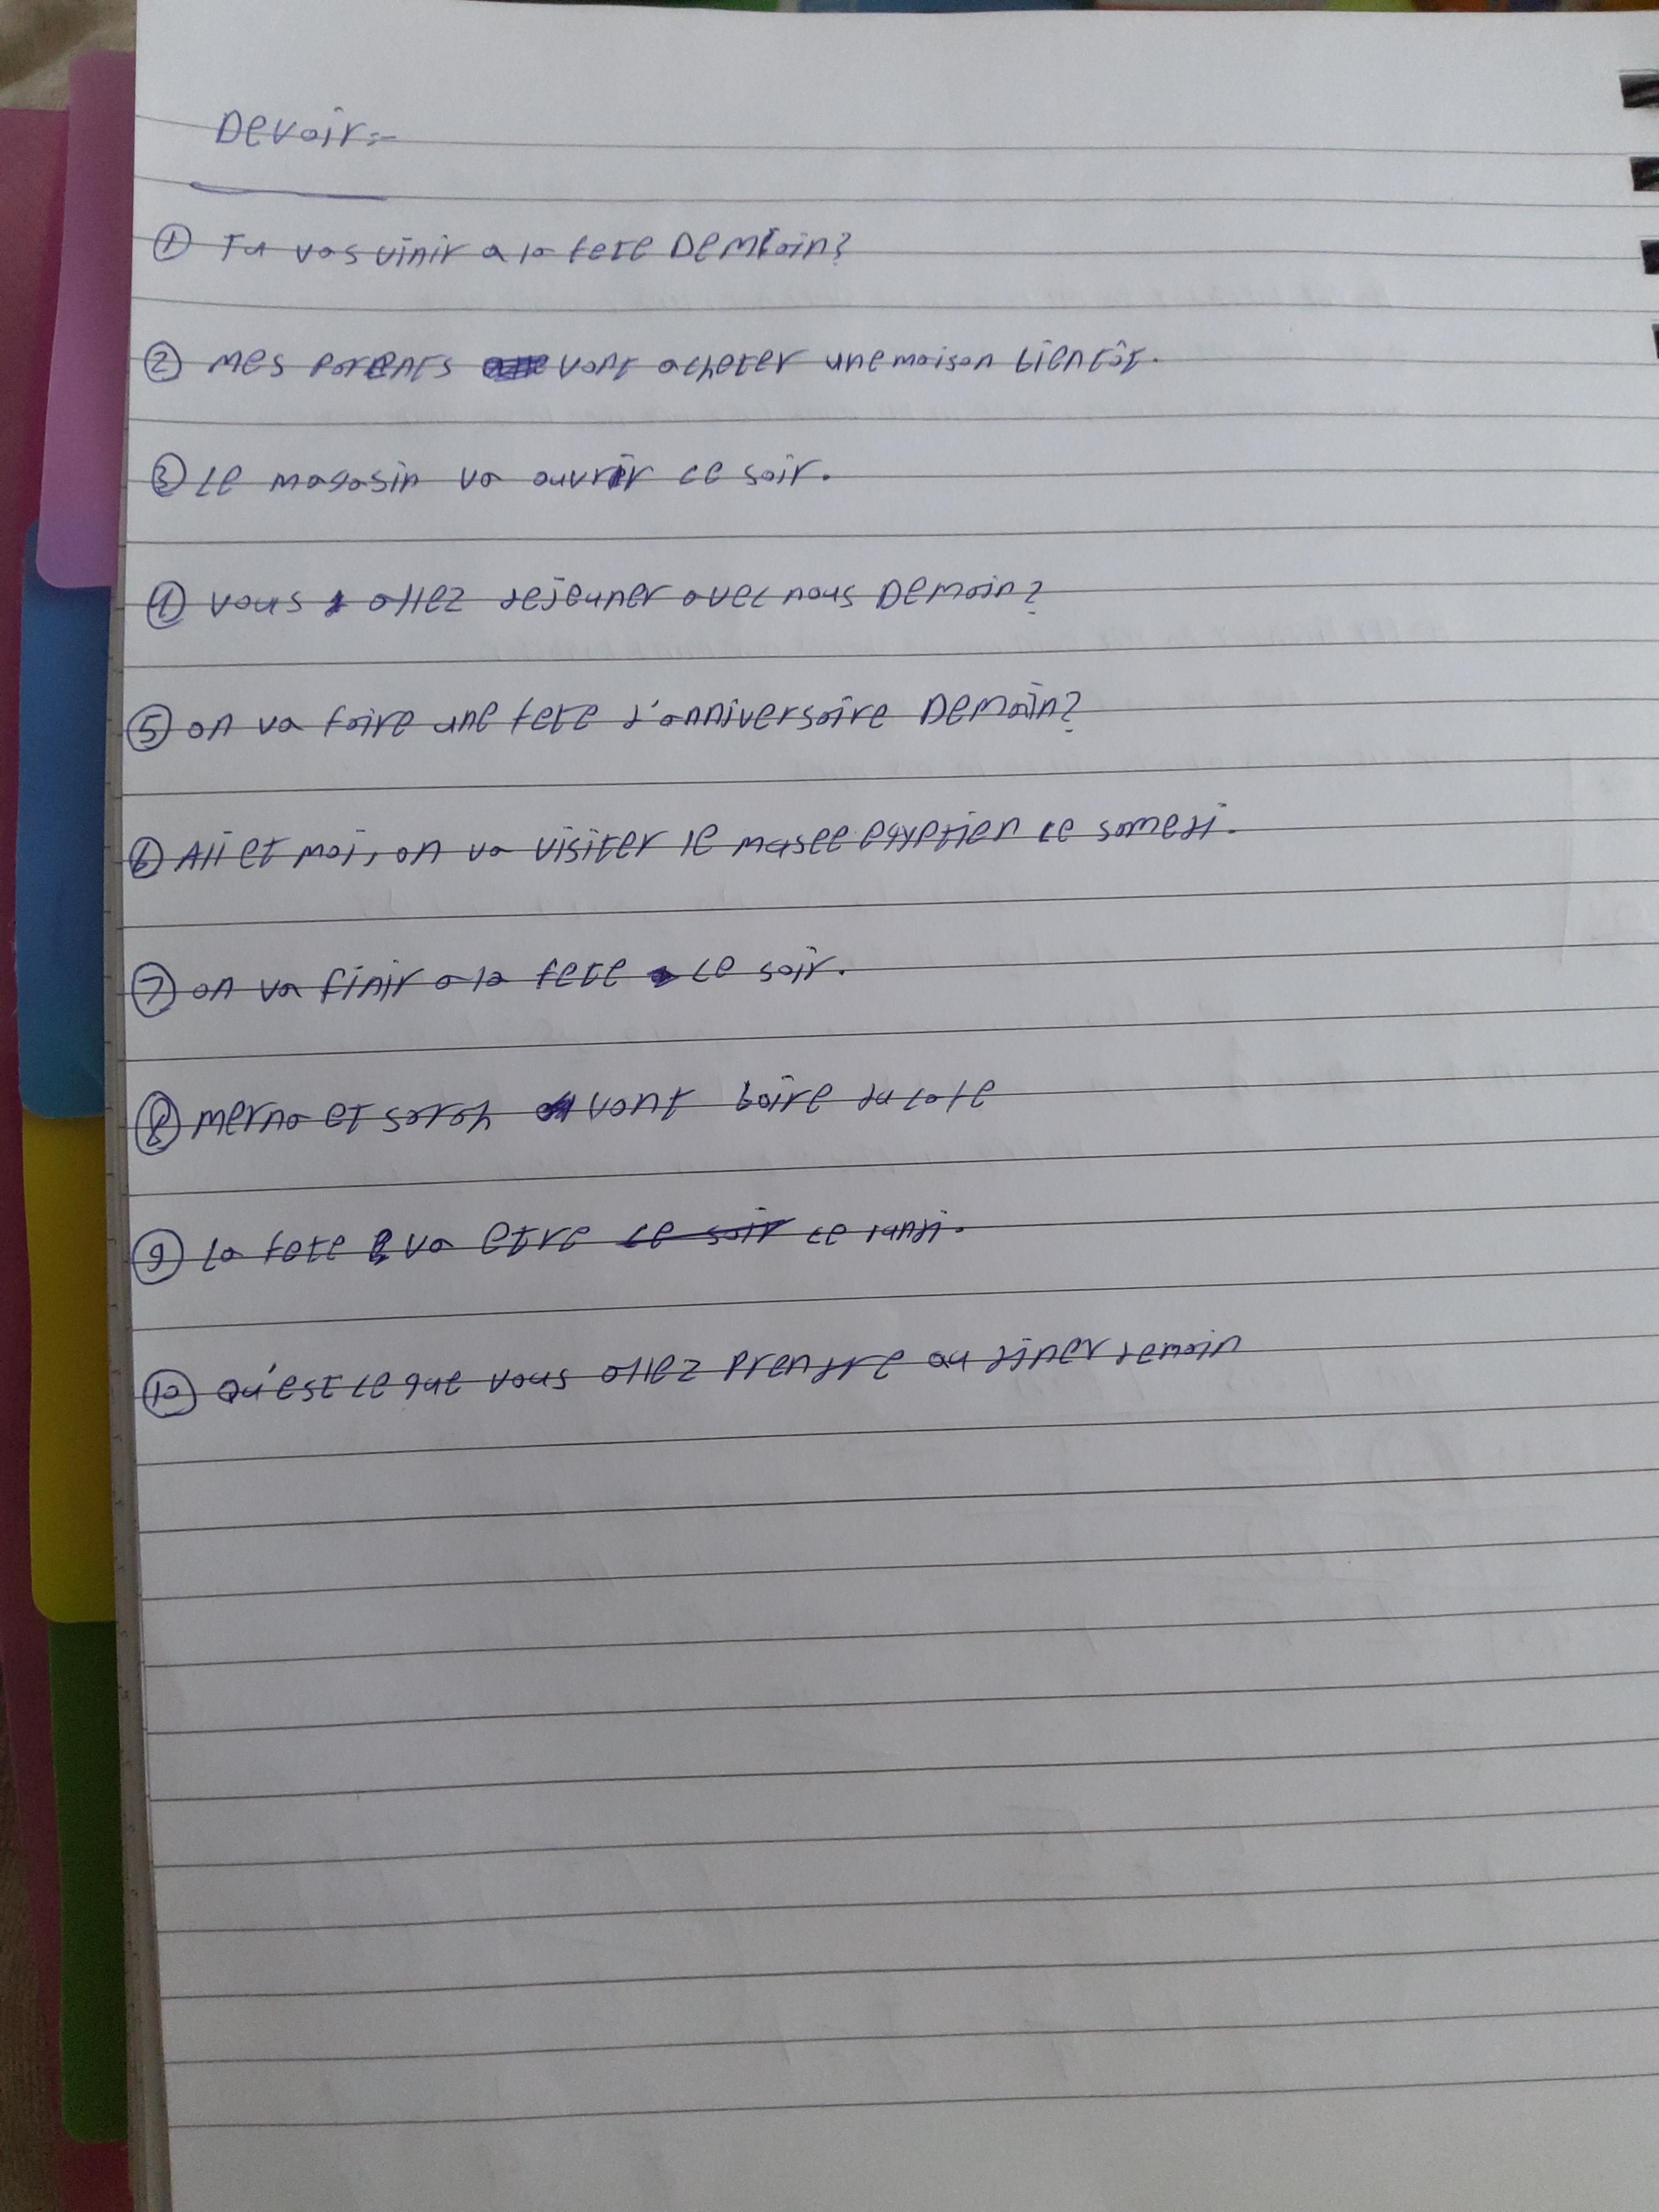 Devoir:-
① Tu vas vinir a la fete Demain?
② Mes Parents vont acheter une maison bientôt.
③ Le magasin va ouvrir ce soir.
④ Vous allez dejeuner avec nous Demain?
⑤ on va faire une fete d'anniversaire Demain?
⑥ Ali et moi, on va visiter le musee egyptien ce samedi.
⑦ on va finir a la fete ce soir.
⑧ Merna et sarah vont boire du cafe
⑨ La fete va etre ce soir ce lundi.
⑩ Qu'est ce que vous allez Prendre au diner demain